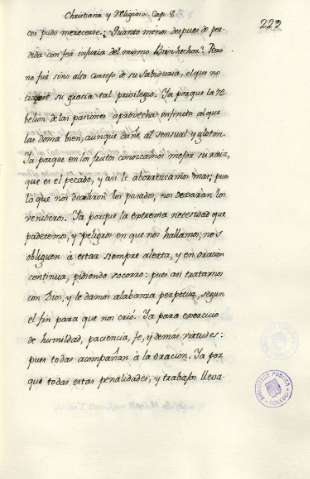 Christiana y Religiosa Cap. 8.
229
con pudo merecerse? Quanto menos despues de per-
dida con feo injuria del mismo Bienhechor? Pero
no fué sino alto consejo de su Sabiduria, el que no
su gracia tal privilegio. Ya porque la re-
belion de las pasiones aprovecha infinito al que
las doma bien, aunque dañe al sensual y gloton.
Ya porque en los frutos conozcamos mejor su raiz,
que es el pecado, y asi le aborrezcamos mas; pues
lo que nos dexaron los pasados, nos los
venideros. Ya porque la extrema necesidad que
padecemos, y peligros en que nos hallamos, nos
obliguen á estar siempre alerta, y en oracion
continua, pidiendo socorro: pues asi tratamos
con Dios, y le damos alabanza perpetua, segun
el fin para que nos crió. Ya para exercicio
de humildad, paciencia, fe, y demas virtudes:
pues todas acompañan á la oracion. Ya por-
que todas estas penalidades, y trabajos lleva-
BIBLIOTECA PUBLICA
TOLEDO